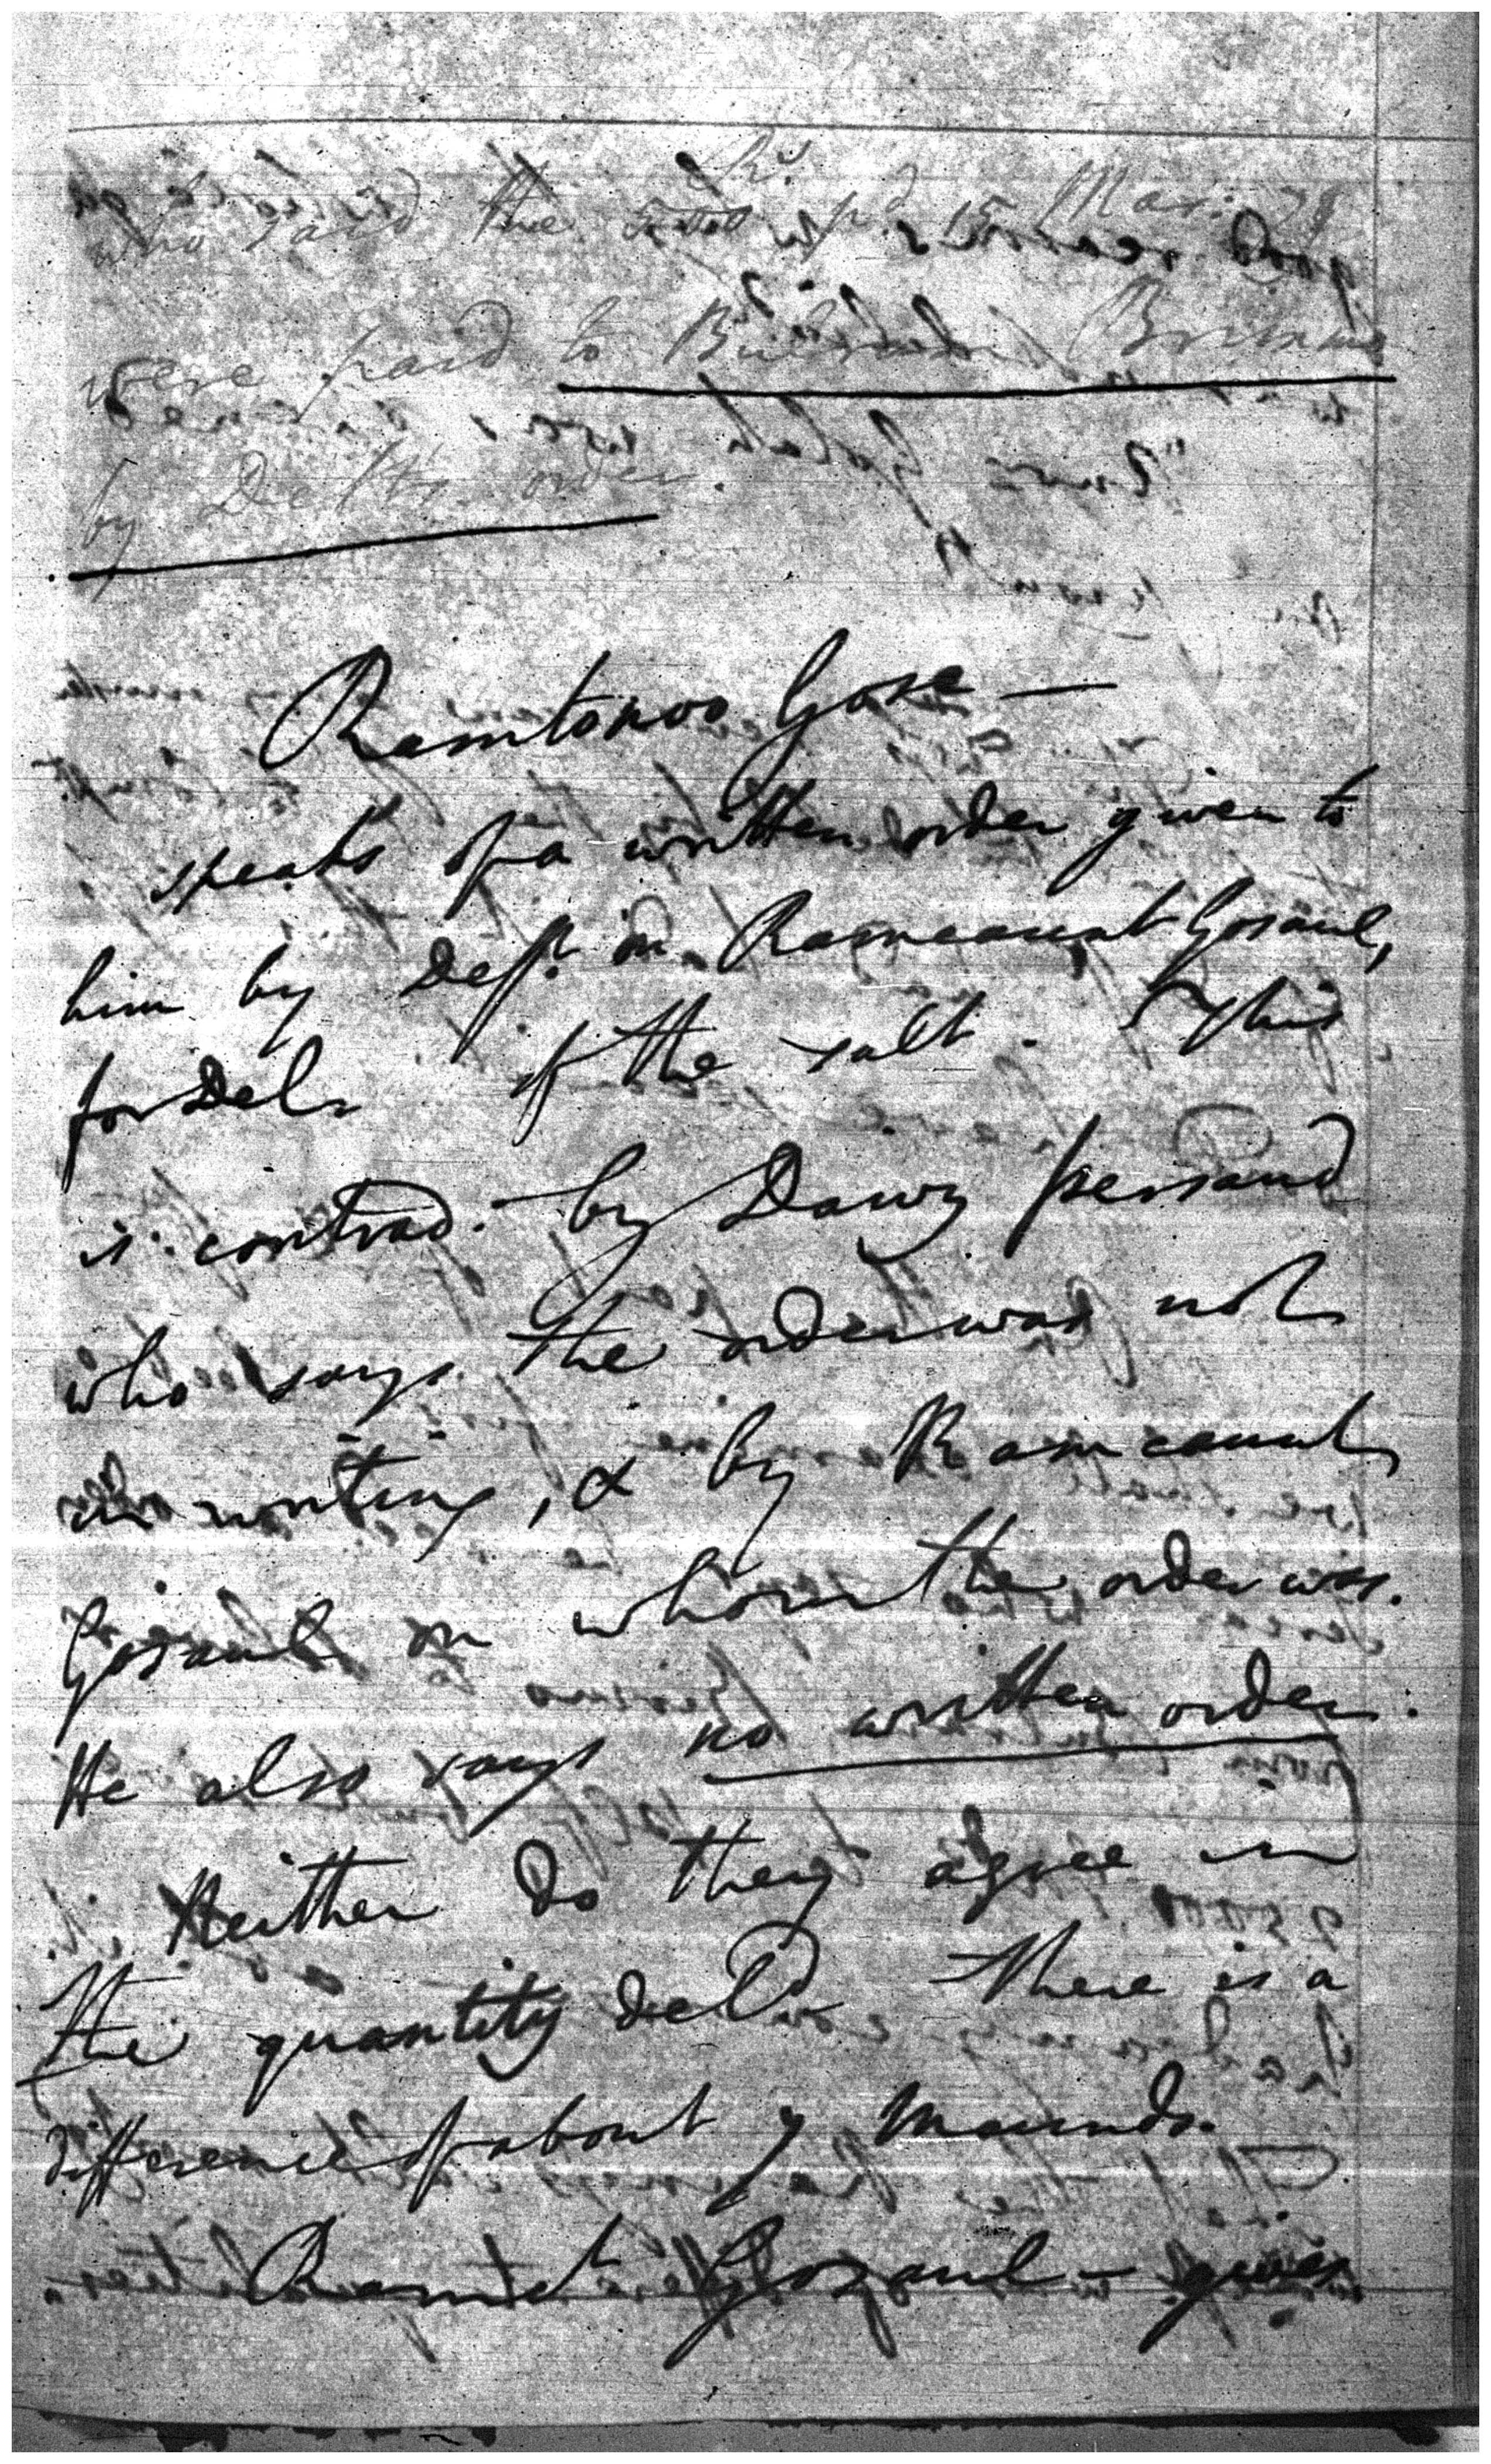 who said the 5000 Rs. pd. 15 Mar: 78
were paid to
by Defts. order.
Ramtonoo Gose —
speaks of a written order given to
him by Deft. on Ramcaunt Gosaul,
for Del. of the salt. This
is contrad. by Dawy persaud
who says the order was not
in writing, & by Ramcaunt
Gosaul on whom the order was.
He also says no written order.
Neither do they agree in
the quantity deld. There is a
difference of about y Maunds.
Ramct Gosaul — gives